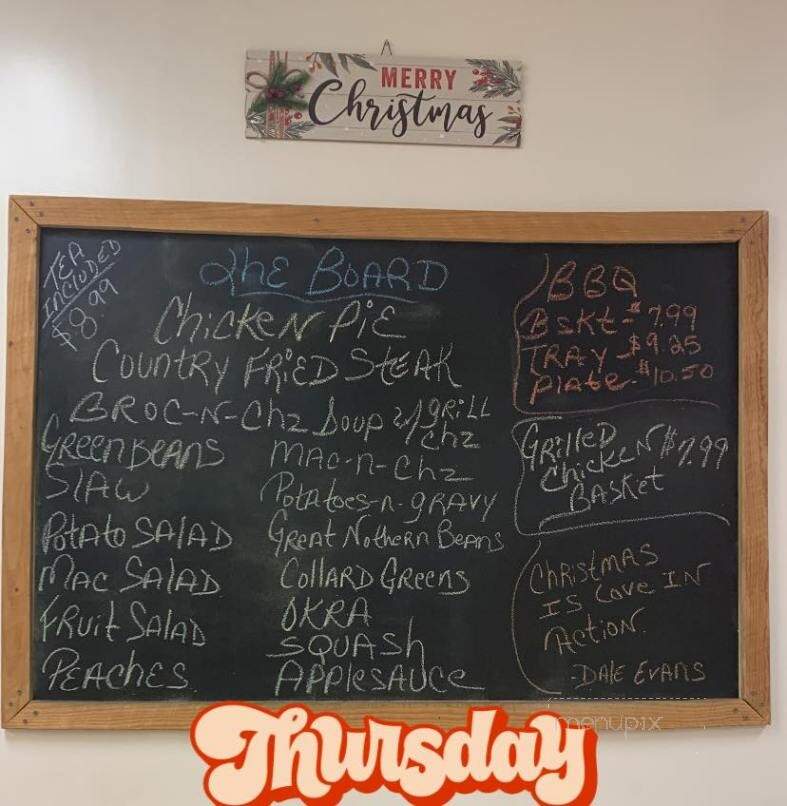 MERRY
Christmas
TEA
INCLUDED
$8.99
The BOARD
Chicken Pie
Country Fried Steak
Broc-n-Chz Soup w/grill
chz
Green Beans
Slaw
Potato Salad
Mac Salad
Fruit Salad
Peaches
Mac-n-Chz
Potatoes-n-gravy
Great Nothern Beans
Collard Greens
Okra
Squash
Applesauce
BBQ
Bskt - $7.99
Tray - $9.25
Plate - $10.50
Grilled
Chicken $7.99
Basket
Christmas
Is Love In
Action.
-Dale Evans
menupix
Thursday